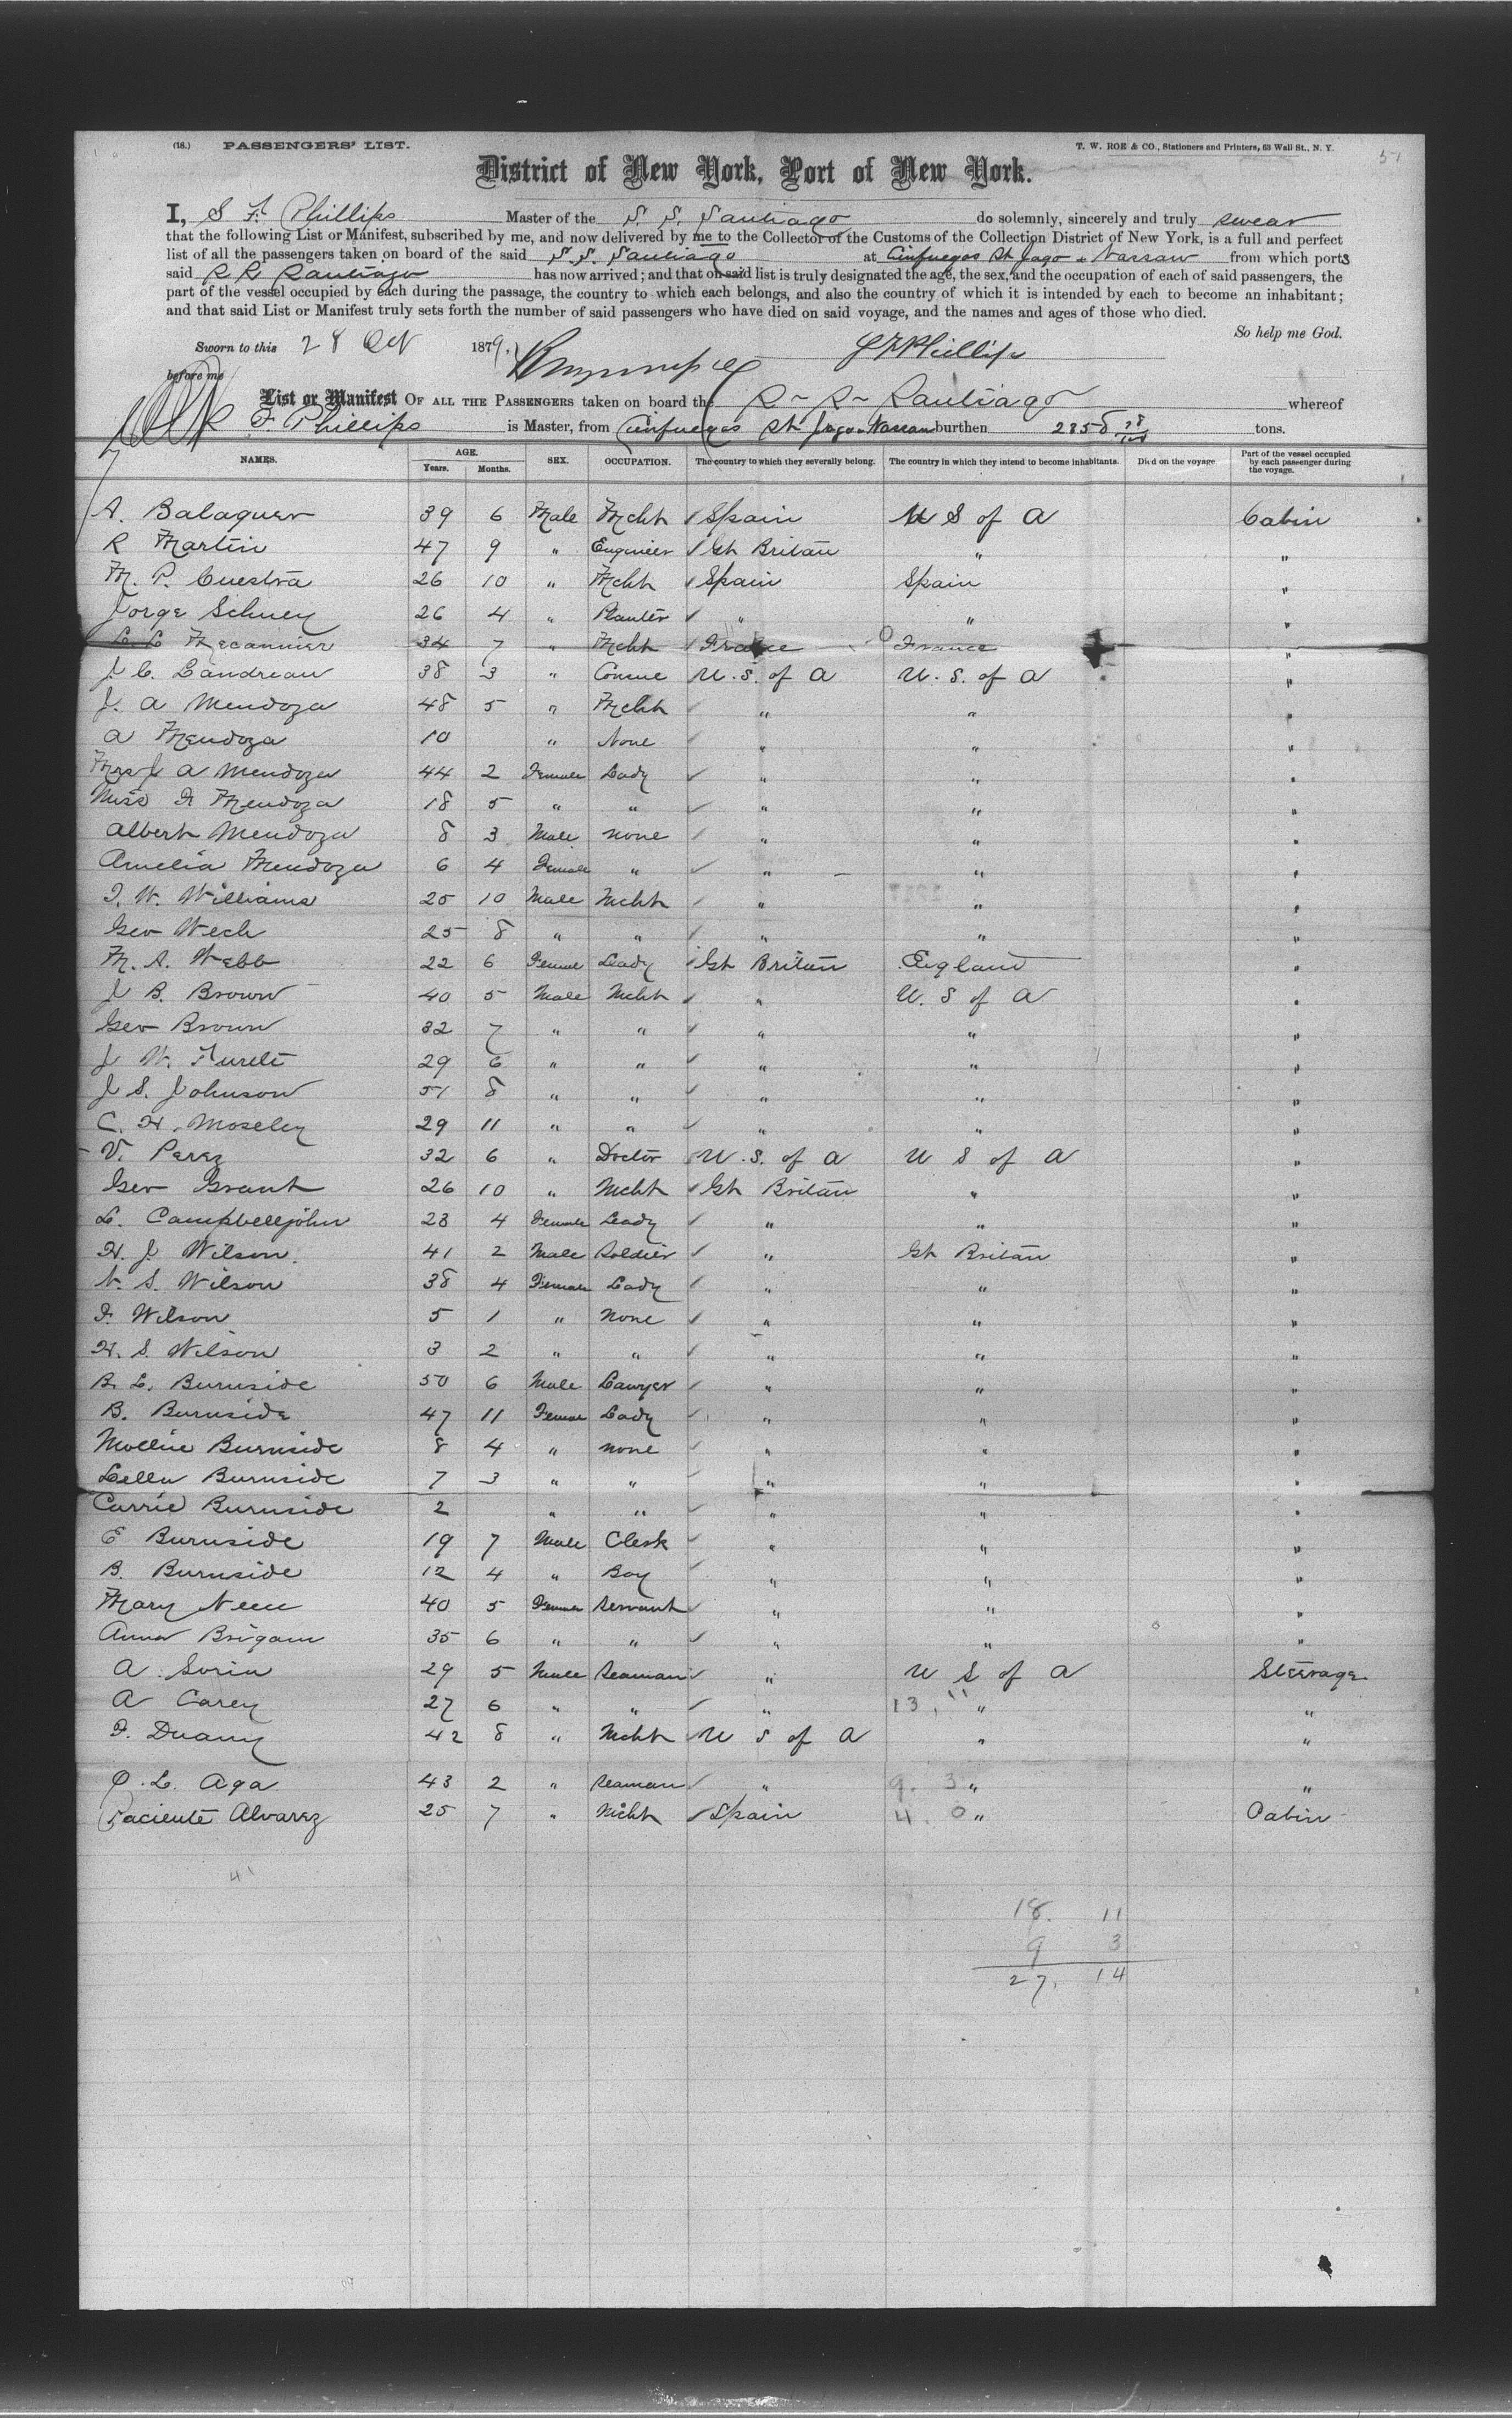 (18.) PASSENGERS' LIST. T. W. ROE & CO., Stationers and Printers, 63 Wall St., N. Y. 51
District of New York, Port of New York.
I, S F. Phillips Master of the S. S. Santiago do solemnly, sincerely and truly swear
that the following List or Manifest, subscribed by me, and now delivered by me to the Collector of the Customs of the Collection District of New York, is a full and perfect
list of all the passengers taken on board of the said S. S. Santiago at Cinfuegos St Jago & Nassau from which ports
said S. S. Santiago has now arrived; and that on said list is truly designated the age, the sex, and the occupation of each of said passengers, the
part of the vessel occupied by each during the passage, the country to which each belongs, and also the country of which it is intended by each to become an inhabitant;
and that said List or Manifest truly sets forth the number of said passengers who have died on said voyage, and the names and ages of those who died.
So help me God.
Sworn to this 28 Oct 1879. S F Phillips
before me
List or Manifest OF ALL THE PASSENGERS taken on board the S - S - Santiago whereof
S F. Phillips is Master, from Cinfuegos St Jago & Nassau burthen 2358 tons.
NAMES. AGE. Years. Months. SEX. OCCUPATION. The country to which they severally belong. The country in which they intend to become inhabitants. Died on the voyage Part of the vessel occupied by each passenger during the voyage.
A. Balaguer 39 6 Male Mcht Spain U S of A Cabin
R Martin 47 9 " Engineer Gt Britan " "
M. P. Cuestra 26 10 " Mcht Spain Spain "
Jorge Schuey 26 4 " Planter " " "
34 7 " Mcht France France "
J C. Landreau 38 3 " U. S. of A U. S. of A "
J. A Mendoza 48 5 " Mcht " " "
A Mendoza 10 " None " " "
Mrs J A Mendoza 44 2 Female Lady " " "
Miss F Mendoza 18 5 " " " " "
Albert Mendoza 8 3 Male none " " "
Amelia Mendoza 6 4 Female " " " "
T. W. Williams 25 10 Male Mcht " " "
Geo Wech 25 8 " " " " "
M. A. Webb 22 6 Female Lady Gt Britan England "
J B. Brown 40 5 Male Mcht " U. S of A "
Geo Brown 32 7 " " " " "
J W. 29 6 " " " " "
J S. Johnson 51 8 " " " " "
C. H. Moseley 29 11 " " " " "
V. Perez 32 6 " Doctor U. S. of A U S of A "
Geo Grant 26 10 " Mcht Gt Britan " "
L. Campbelljohn 23 4 Female Lady " " "
H. J. Wilson 41 2 Male Soldier " Gt Britan "
N. S. Wilson 38 4 Female Lady " " "
F. Wilson 5 1 " None " " "
H. S. Wilson 3 2 " " " " "
B. L. Burnside 50 6 Male Lawyer " " "
B. Burnside 47 11 Female Lady " " "
Mollie Burnside 8 4 " none " " "
Lella Burnside 7 3 " " " " "
Carrie Burnside 2 " " " " "
E Burnside 19 7 Male Clerk " " "
B. Burnside 12 4 " Boy " " "
Mary 40 5 Female Servant " " "
Anna Brigam 35 6 " " " " "
A. Soria 29 5 Male Seaman " U S of A Steerage
A Carey 27 6 " " " 13, 11 " "
F. Duany 42 8 " Mcht U S of A " "
O. L. Aga 43 2 " Seaman " 9. 3 " "
Paciente Alvarez 25 7 " Mcht Spain 4. 0 " Cabin
41
18. 11
9 3
27, 14